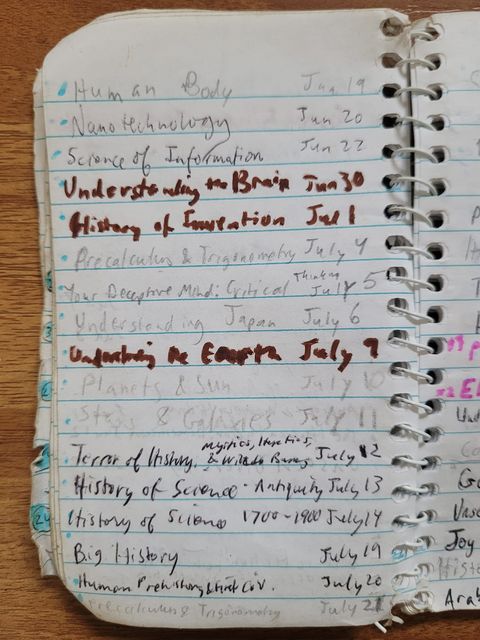 Human Body Jun 19
Nanotechnology Jun 20
Science of Information Jun 22
Understanding the Brain Jun 30
History of Invention Jul 1
Precalculus & Trigonometry July 4
Your Deceptive Mind: Critical Thinking July 5
Understanding Japan July 6
the July 9
Planets & Sun July 10
Stars & Galaxies July 11
Terror of History. Mystics, Heretics, & July 12
History of Science - Antiquity July 13
History of Science 1700-1900 July 14
Big History July 19
Human Prehistory & First Civ. July 20
Precalculus & Trigonometry July 21
Joy